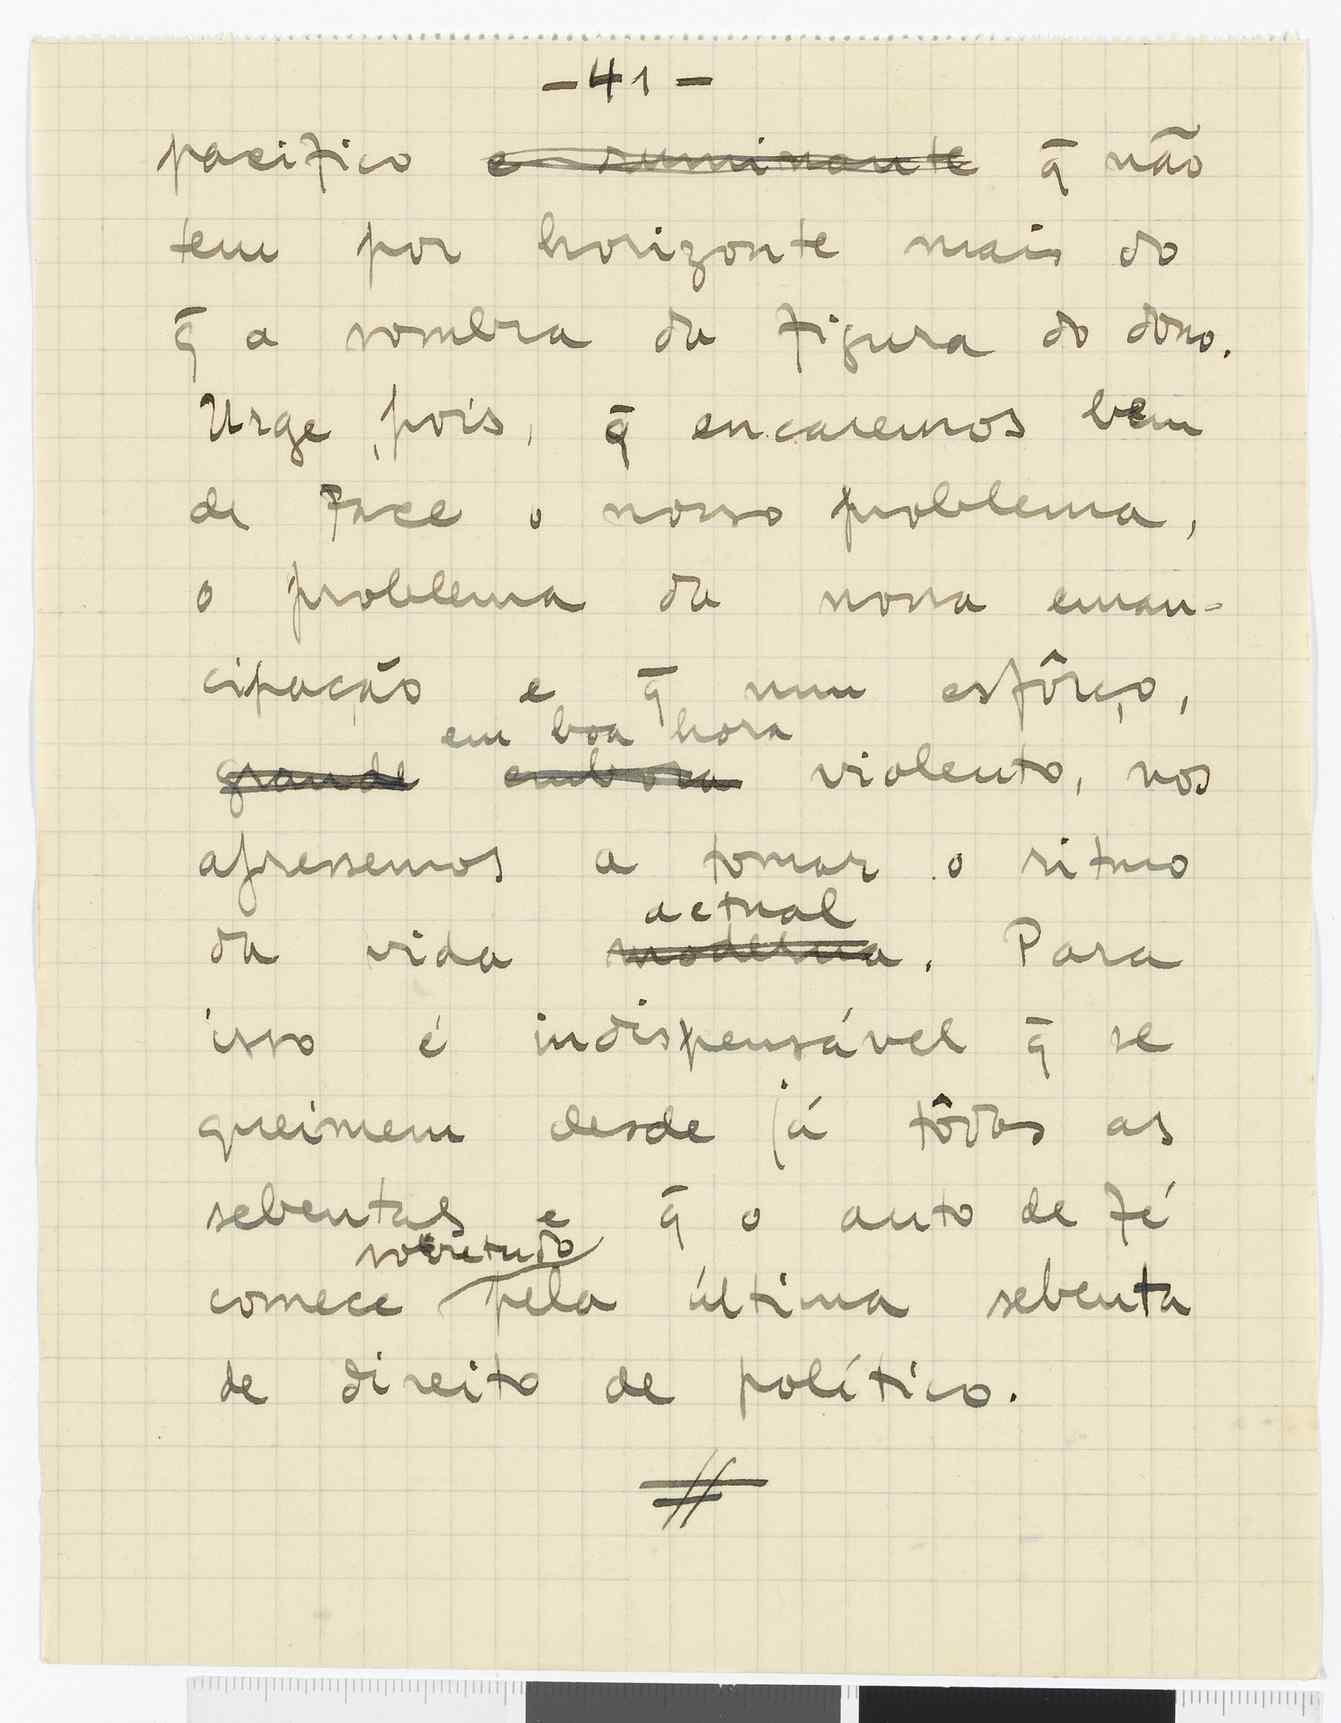 - 41 -
pacifico e ruminante q̄ não
tem por horizonte mais do
q̄ a sombra da figura do dono.
Urge, pois, q̄ encaremos bem
de face o nosso problema,
o problema da nossa eman-
cipação e q̄ num esfôrço,
em boa hora
grande embora violento, nos
apressemos a tomar o ritmo
actual
da vida moderna. Para
isso é indispensável q̄ se
queimem desde já tôdas as
sebentas e q̄ o auto de fé
sobretudo
comece pela última sebenta
de direito de político.